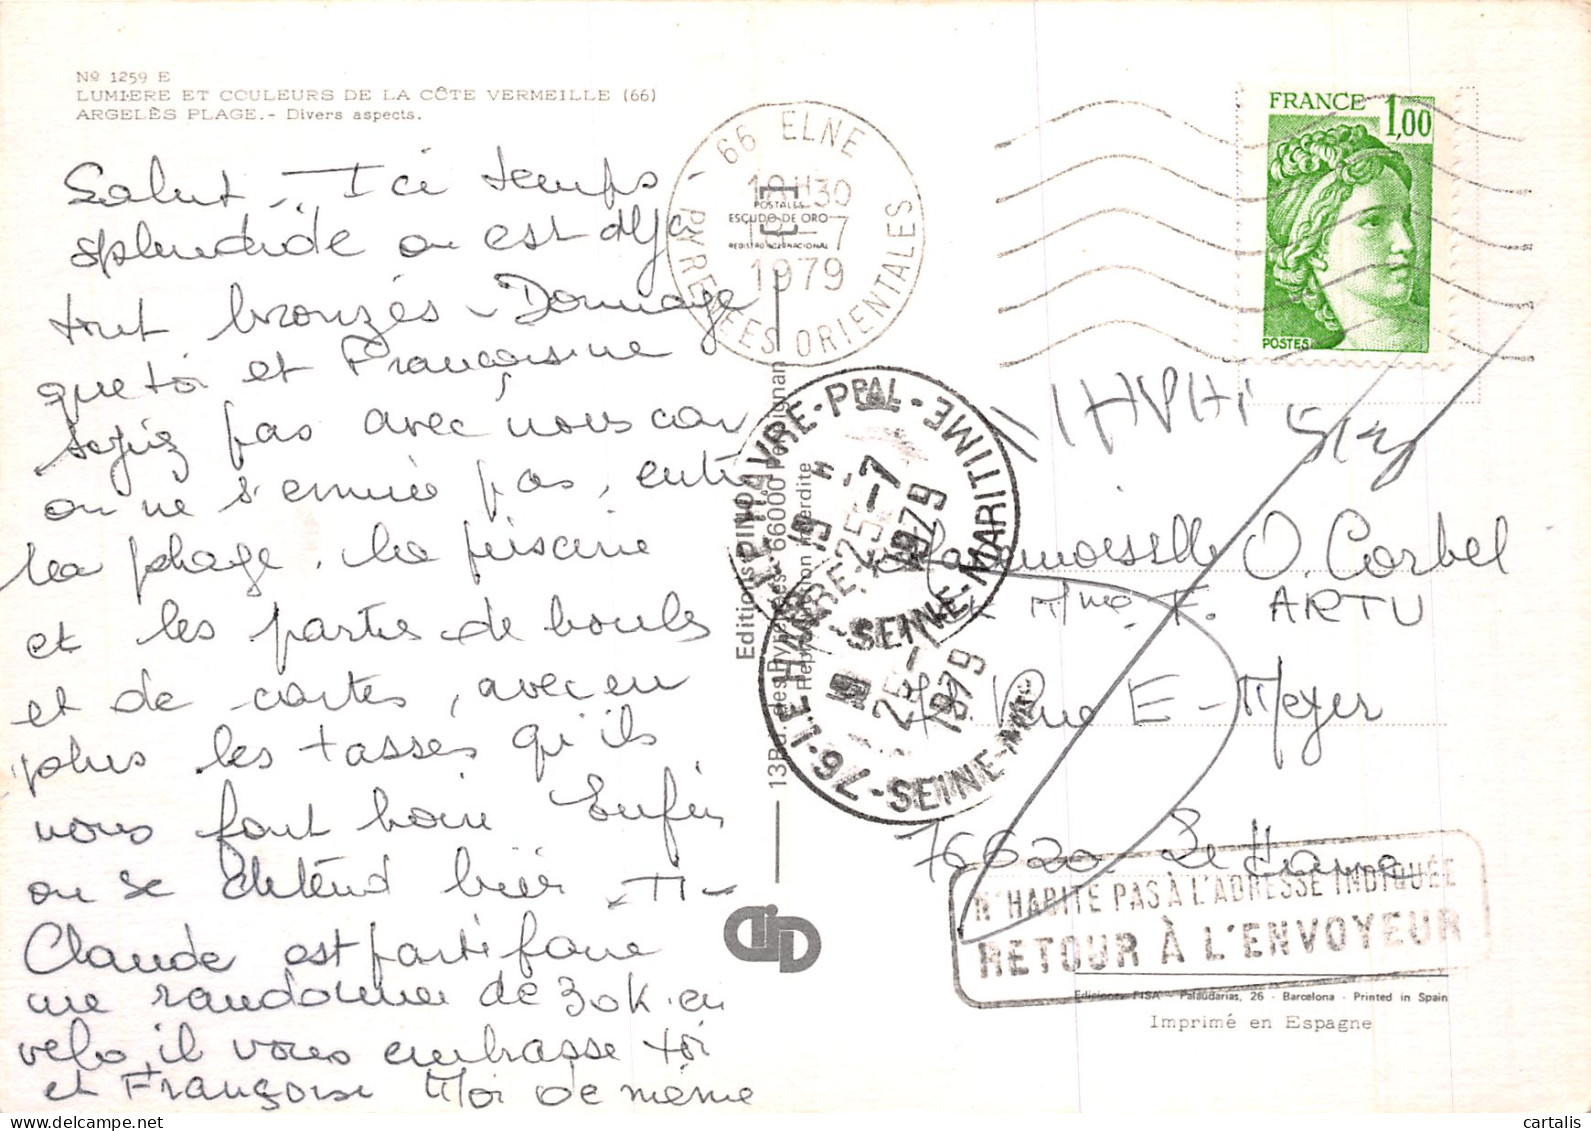 Nº 1259 E
LUMIERE ET COULEURS DE LA CÔTE VERMEILLE (66)
ARGELÈS PLAGE.- Divers aspects.
Salut. Ici temps
splendide on est déja
tout bronzés - Dommage
que toi et Françoise ne
soyiez pas avec nous car
on ne s'ennuie pas, entre
la plage, la piscine
et les parties de boules
et de cartes, avec en
plus les tasses qu'ils
nous font boire Enfin
on se détend bien
Claude est parti faire
une randonnée de 30 K. en
velo, il vous embrasse toi
et Françoise Moi de même
66 ELNE
PYRENEES ORIENTALES
18-7
1979
POSTALES
ESCUDO DE ORO
REGISTRO INTERNACIONAL
FRANCE 1,00
POSTES
76 LE HAVRE-PPAL - SEINE-MARITIME
19 H
25-7
1979
76-LE HAVRE
SEINE-MME
25-7
1979
Editions DINO
13 Bd. des Pyrénées 66000 Perpignan
Reproduction interdite
Mademoiselle O. Corbel
Mme F. ARTU
Rue E - Meyer
76620 Le Havre
N'HABITE PAS À L'ADRESSE INDIQUÉE
RETOUR À L'ENVOYEUR
Ediciones FISA - Palaudarias, 26 - Barcelona - Printed in Spain
Imprimé en Espagne
cartalis